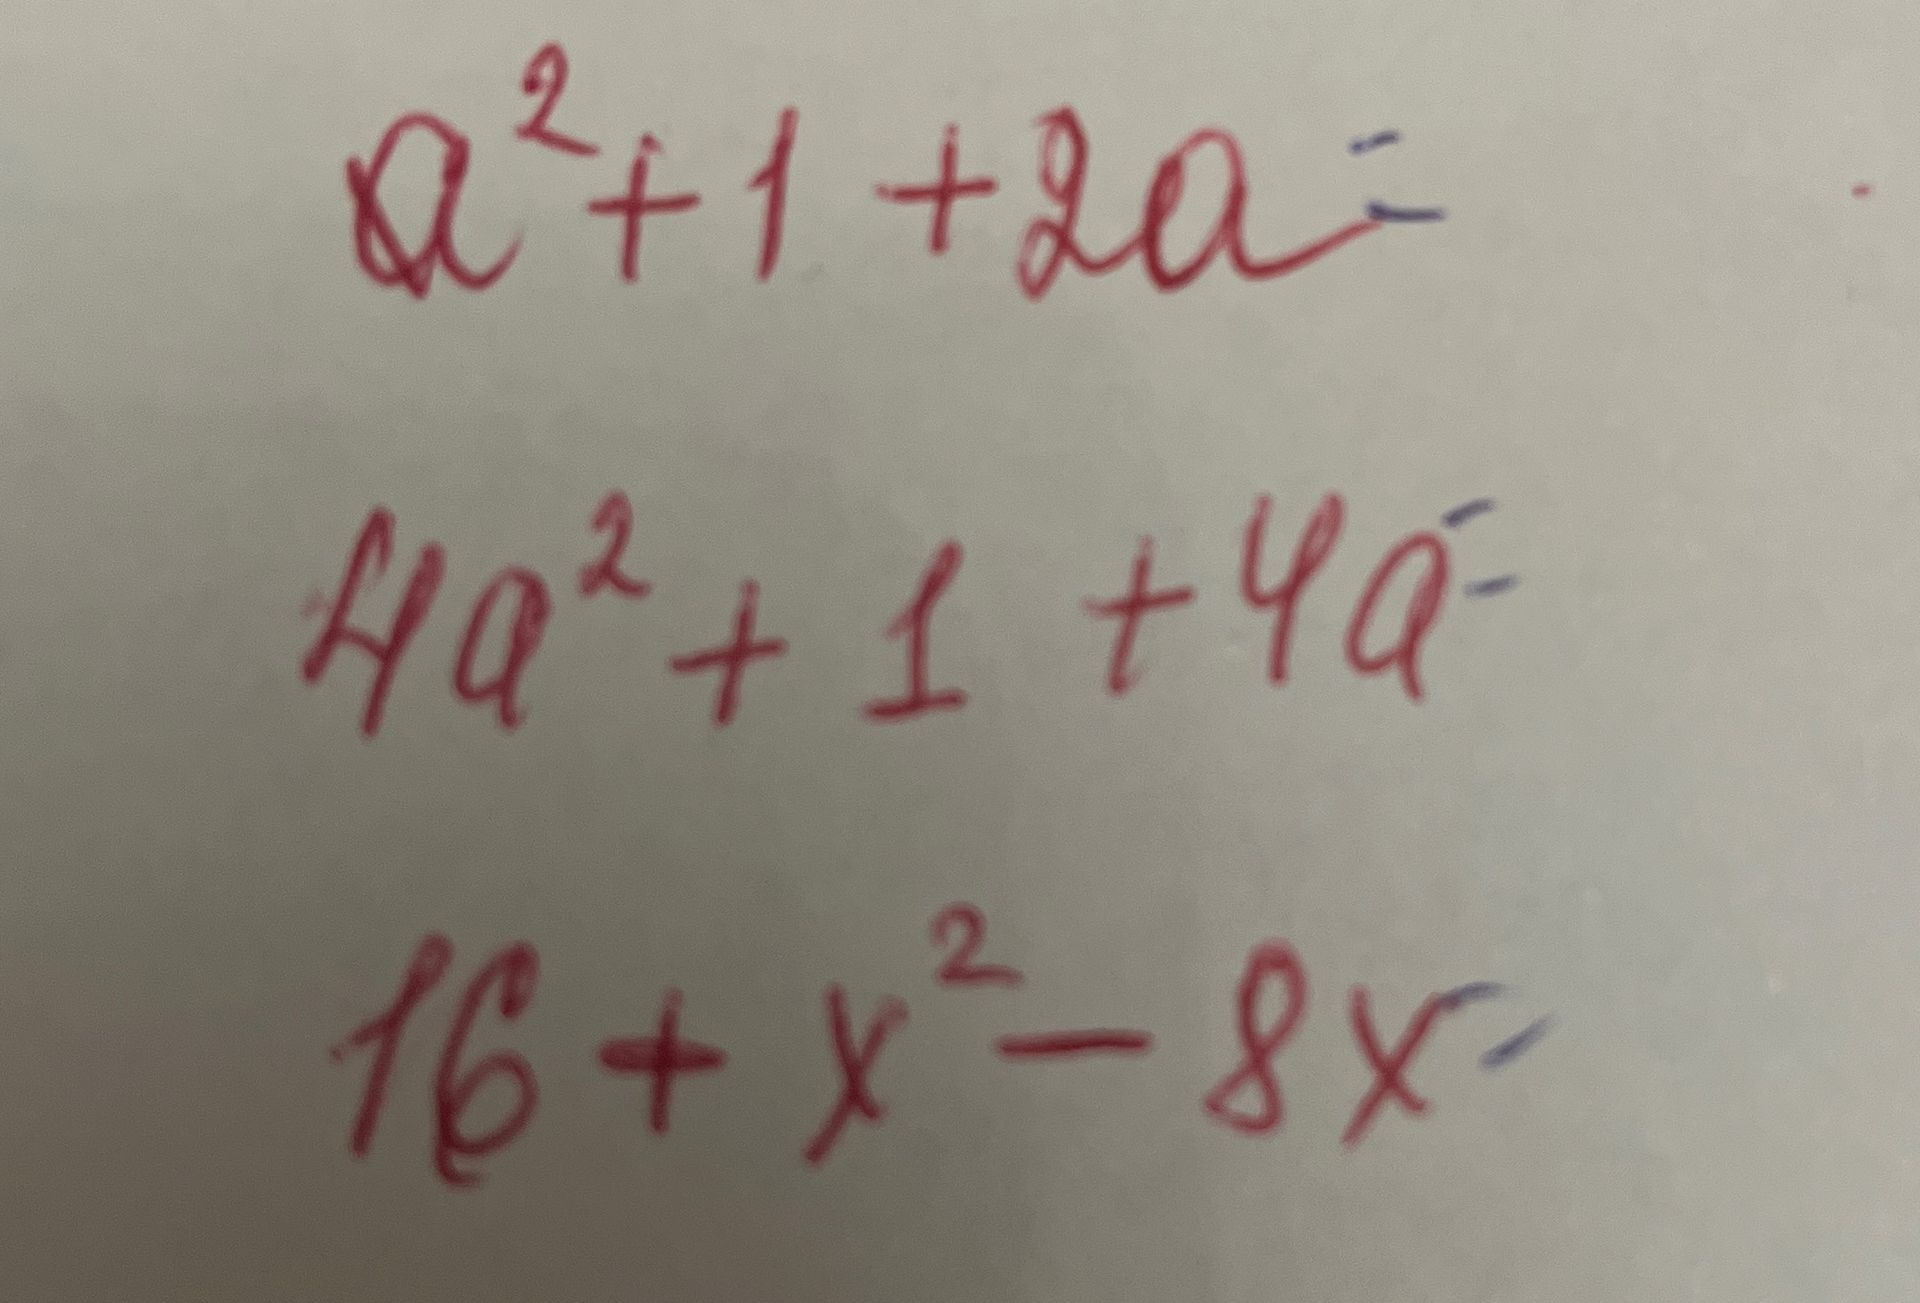 a²+1+2a=
4a²+1+4a=
16+x²-8x=